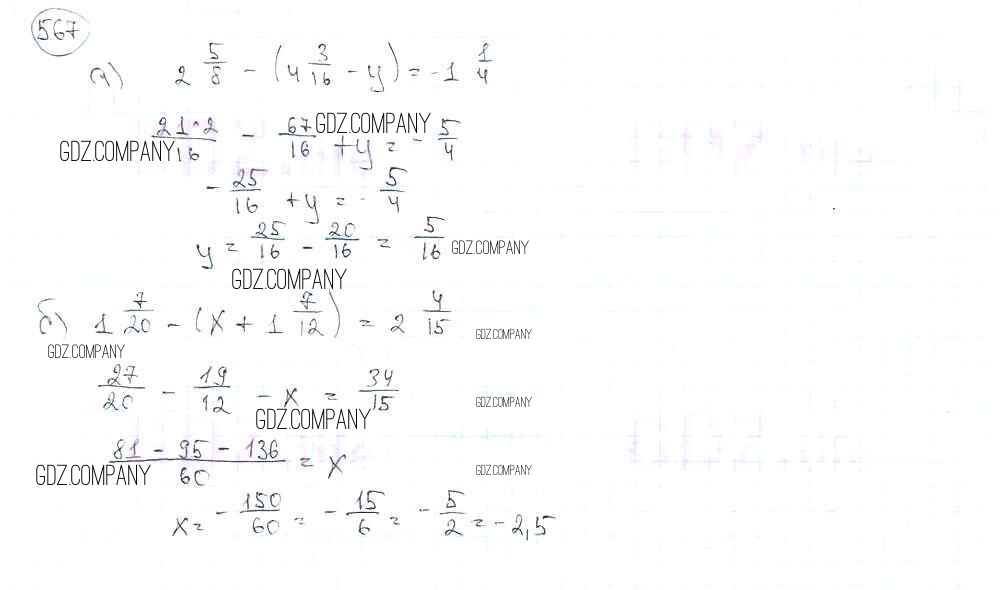 567
а) 2 5/8 - (4 3/16 - y) = -1 1/4
21·2/16 - 67/16 + y = - 5/4
GDZ.COMPANY
GDZ.COMPANY
- 25/16 + y = - 5/4
y = 25/16 - 20/16 = 5/16
GDZ.COMPANY
GDZ.COMPANY
б) 1 7/20 - (x + 1 7/12) = 2 4/15
GDZ.COMPANY
GDZ.COMPANY
27/20 - 19/12 - x = 34/15
GDZ.COMPANY
GDZ.COMPANY
81 - 95 - 136/60 = x
GDZ.COMPANY
GDZ.COMPANY
x = - 150/60 = - 15/6 = - 5/2 = - 2,5